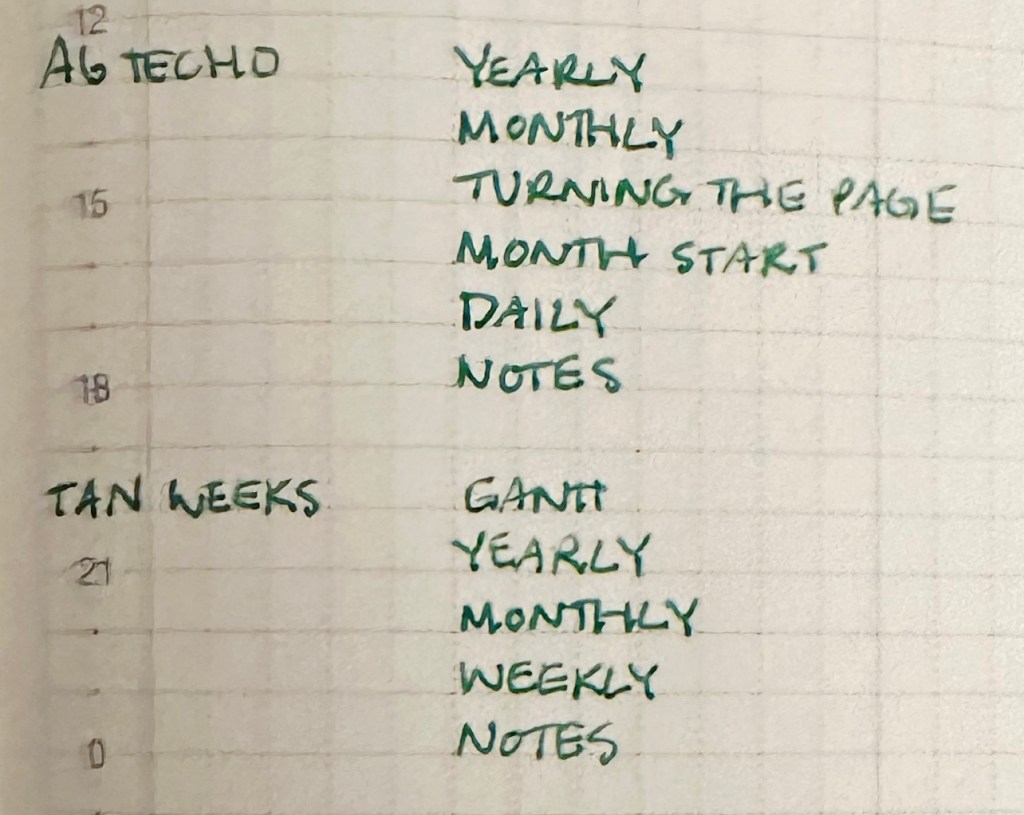 12
A6 TECHO YEARLY
MONTHLY
15 TURNING THE PAGE
MONTH START
DAILY
18 NOTES
TAN WEEKS GANTT
21 YEARLY
MONTHLY
WEEKLY
0 NOTES